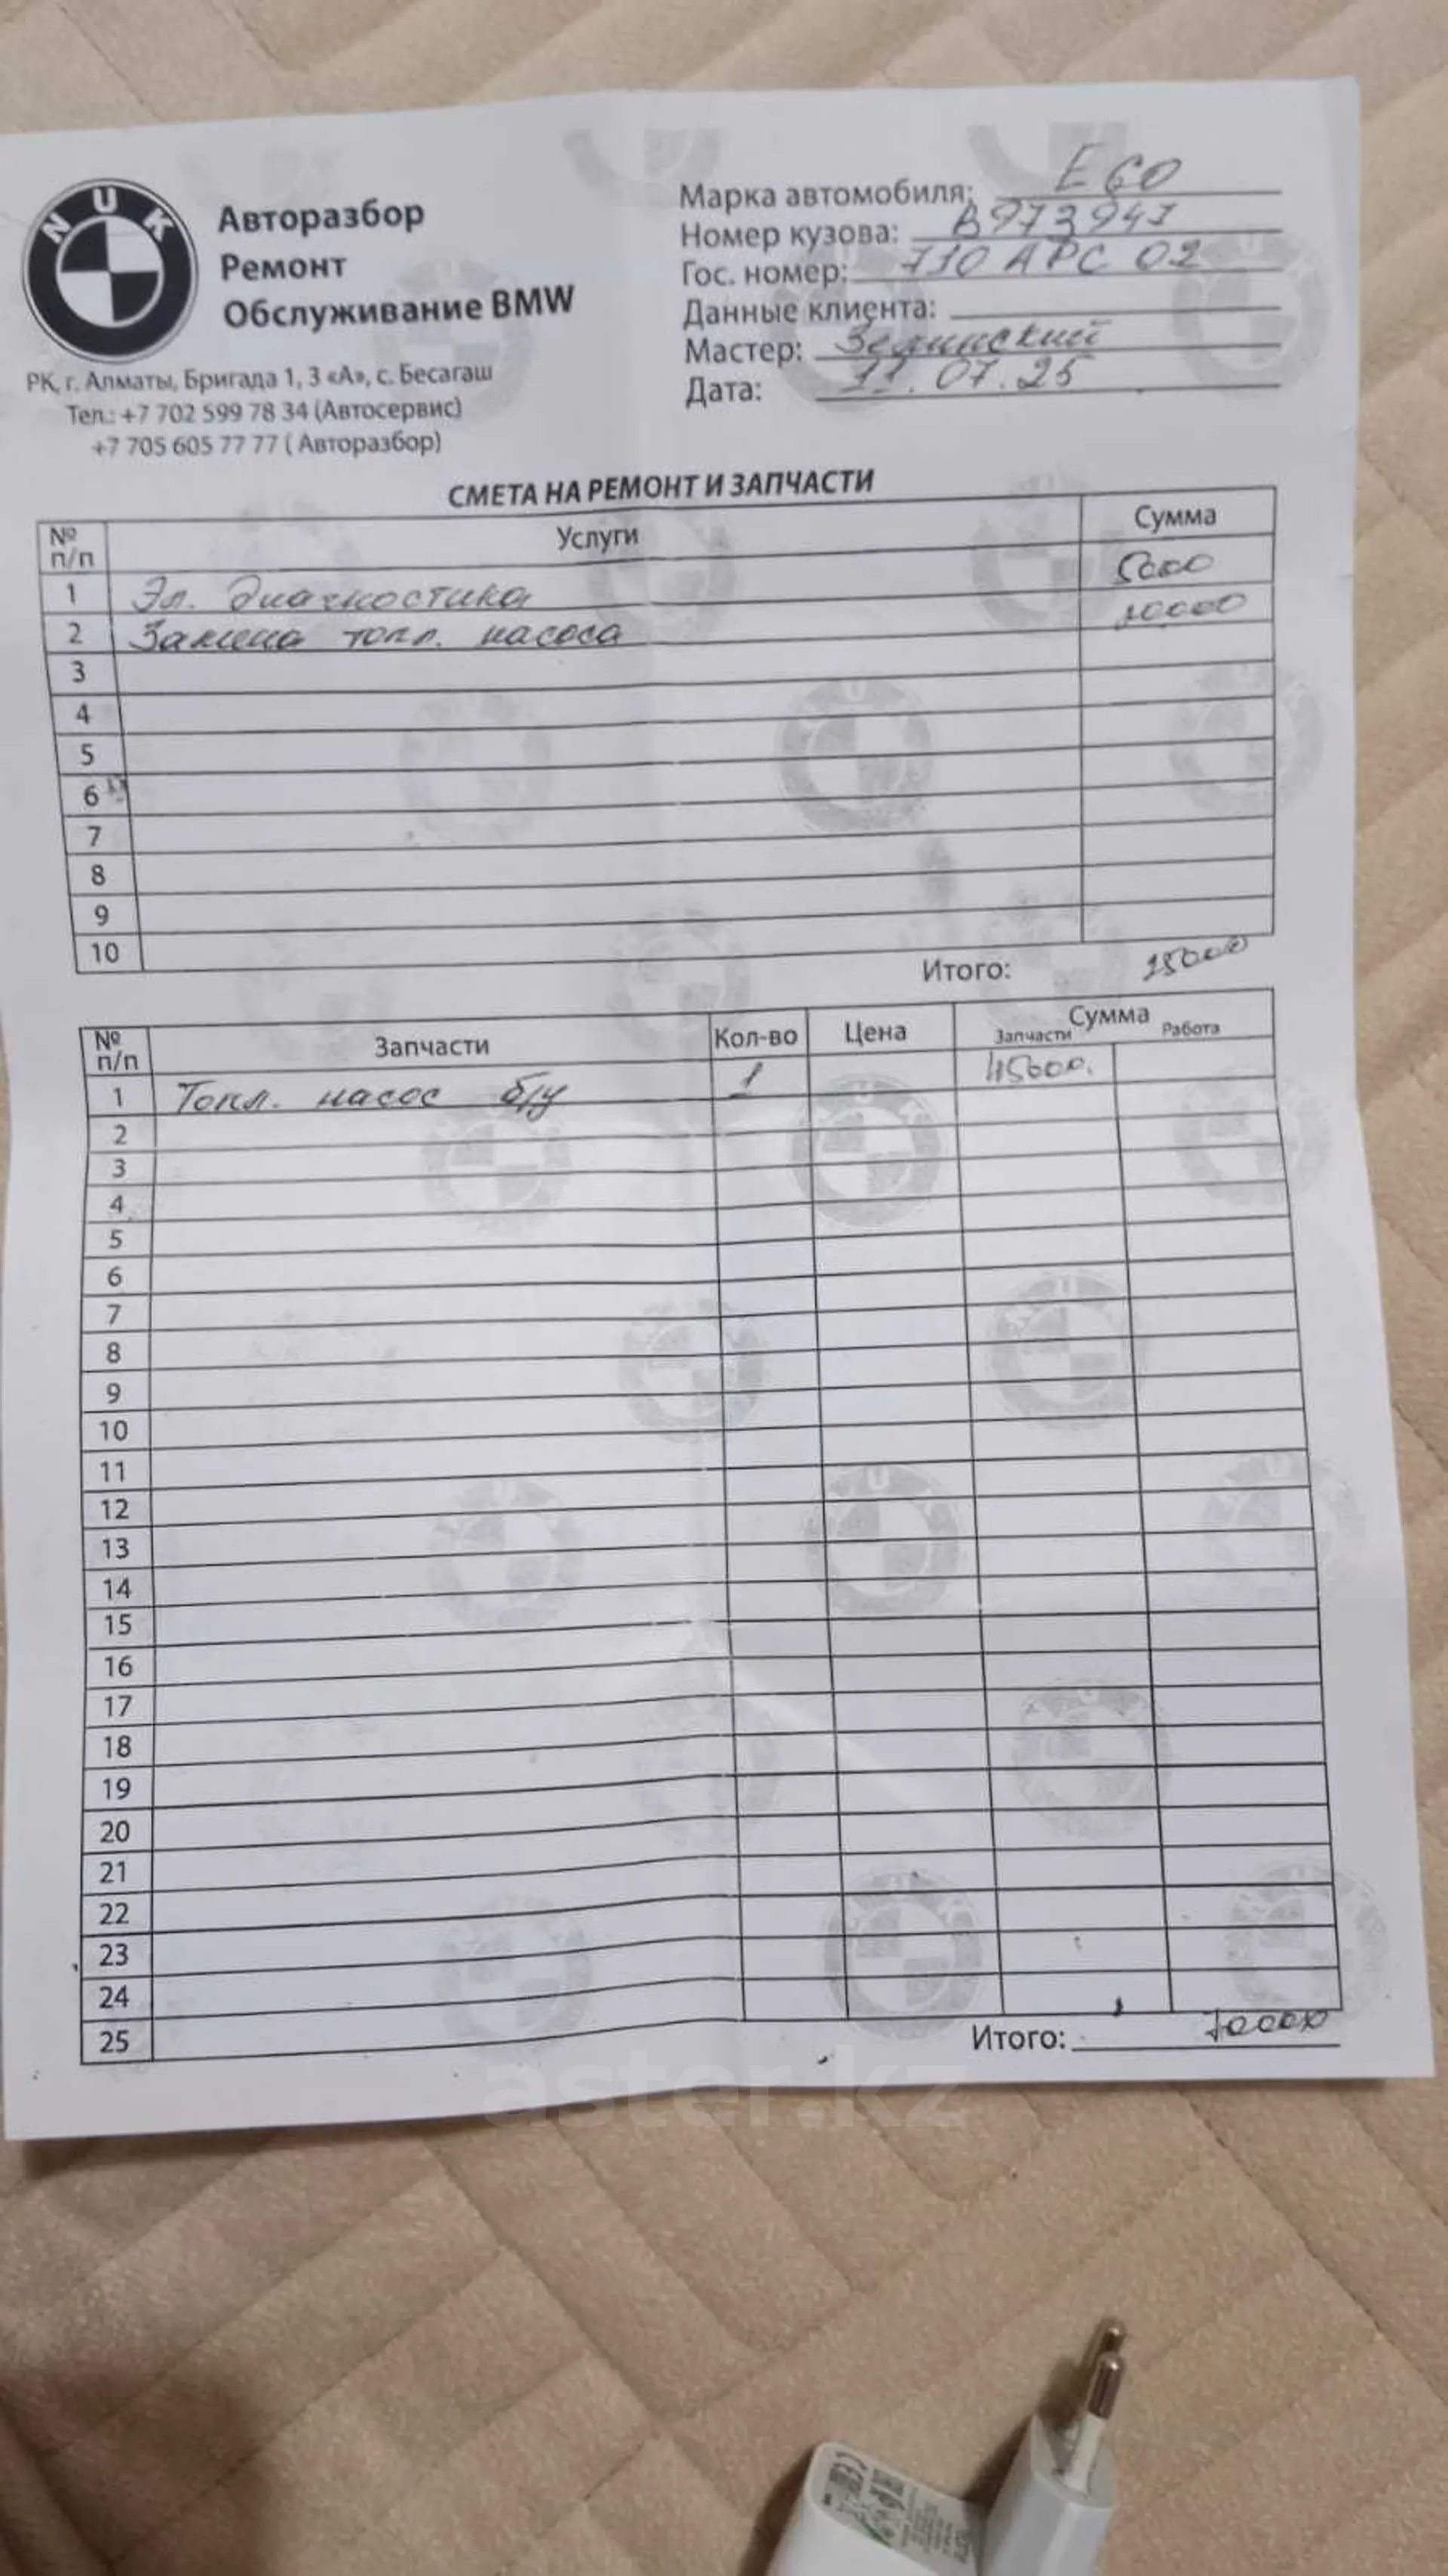 NUK
Авторазбор
Ремонт
Обслуживание BMW
РК, г. Алматы, Бригада 1, 3 «А», с. Бесагаш
Тел.: +7 702 599 78 34 (Автосервис)
+7 705 605 77 77 ( Авторазбор)
Марка автомобиля: E60
Номер кузова: B973947
Гос. номер: 710 APC 02
Данные клиента:
Мастер:
Дата: 11.07.25
СМЕТА НА РЕМОНТ И ЗАПЧАСТИ
№ п/п Услуги Сумма
1 Эл. диагностика 5000
2 Замена топл. насоса 20000
3
4
5
6
7
8
9
10
Итого: 25000
№ п/п Запчасти Кол-во Цена Сумма
Запчасти Работа
1 Топл. насос б/у 1 45000.
2
3
4
5
6
7
8
9
10
11
12
13
14
15
16
17
18
19
20
21
22
23
24
25
Итого: 70000
aster.kz